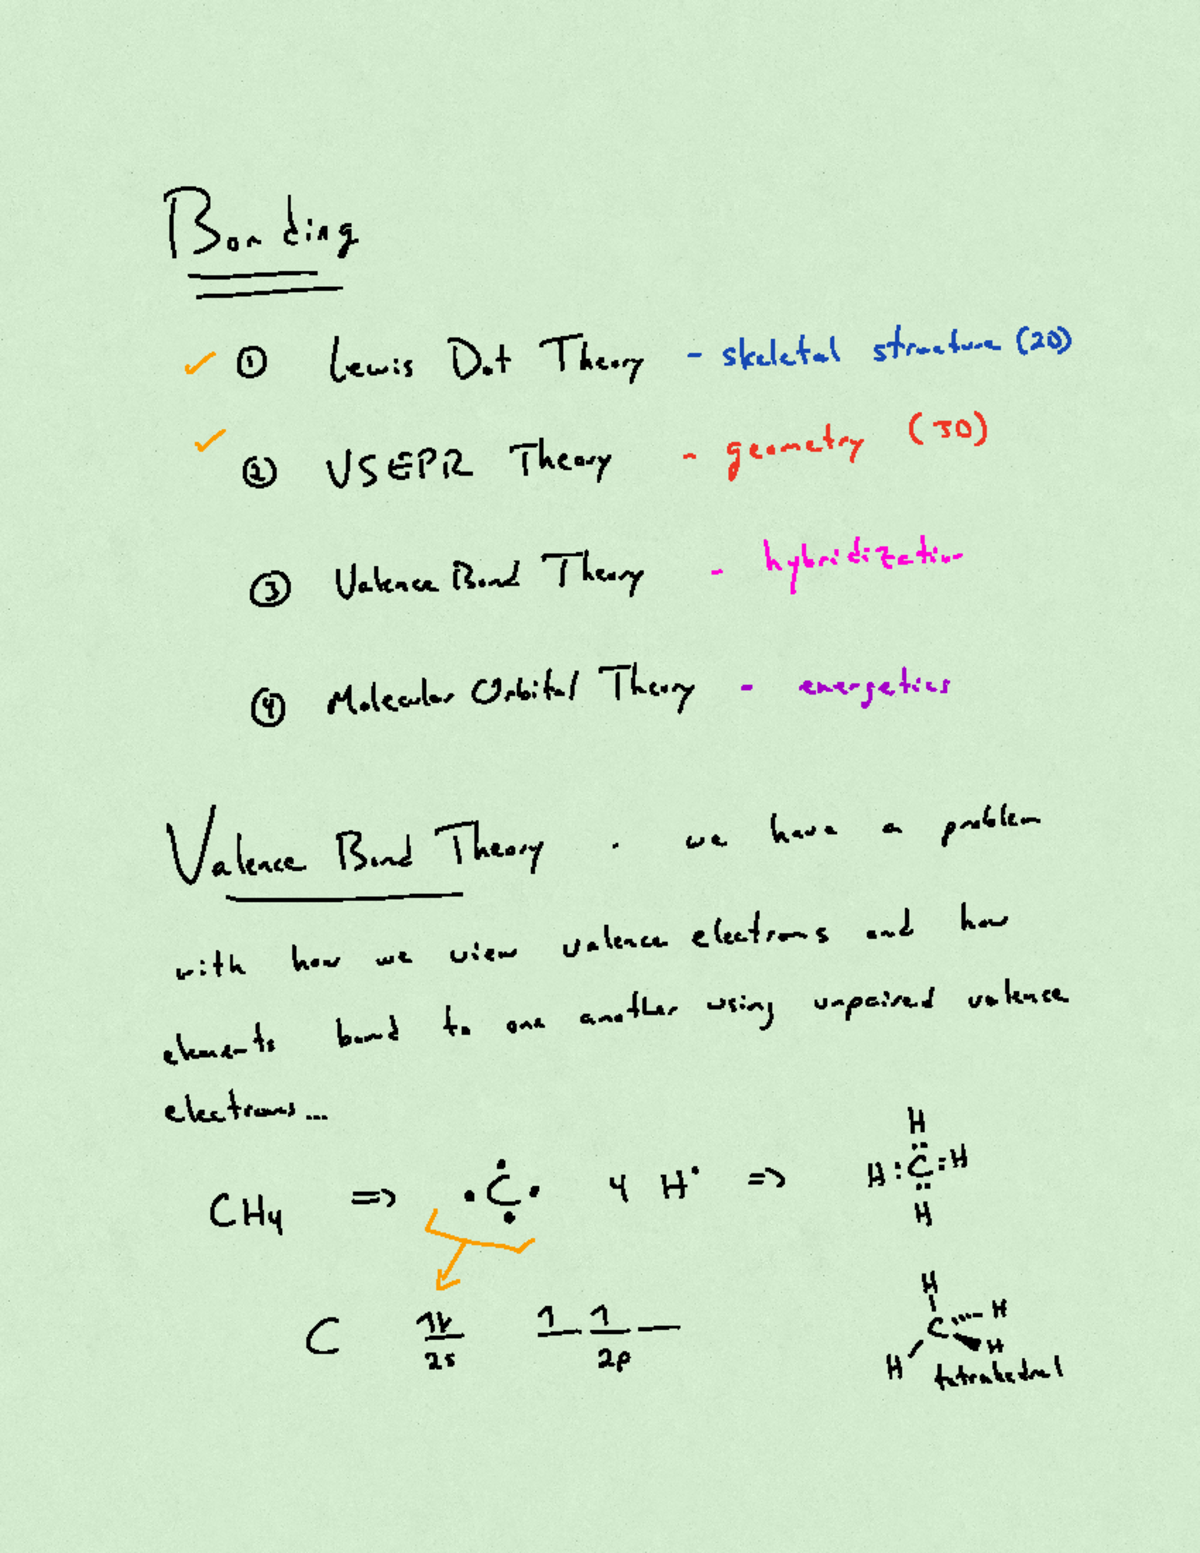 Bonding
✓ ① Lewis Dot Theory - skeletal structure (2D)
✓ ② VSEPR Theory - geometry (3D)
③ Valence Bond Theory - hybridization
④ Molecular Orbital Theory - energetics
Valence Bond Theory . we have a problem
with how we view valence electrons and how
elements bond to one another using unpaired valence
electrons...
H
CH4 => ·C· 4 H· => H:C:H
H
C 1↿⇂ 1 1
2s 2p
H
C H
H H
tetrahedral